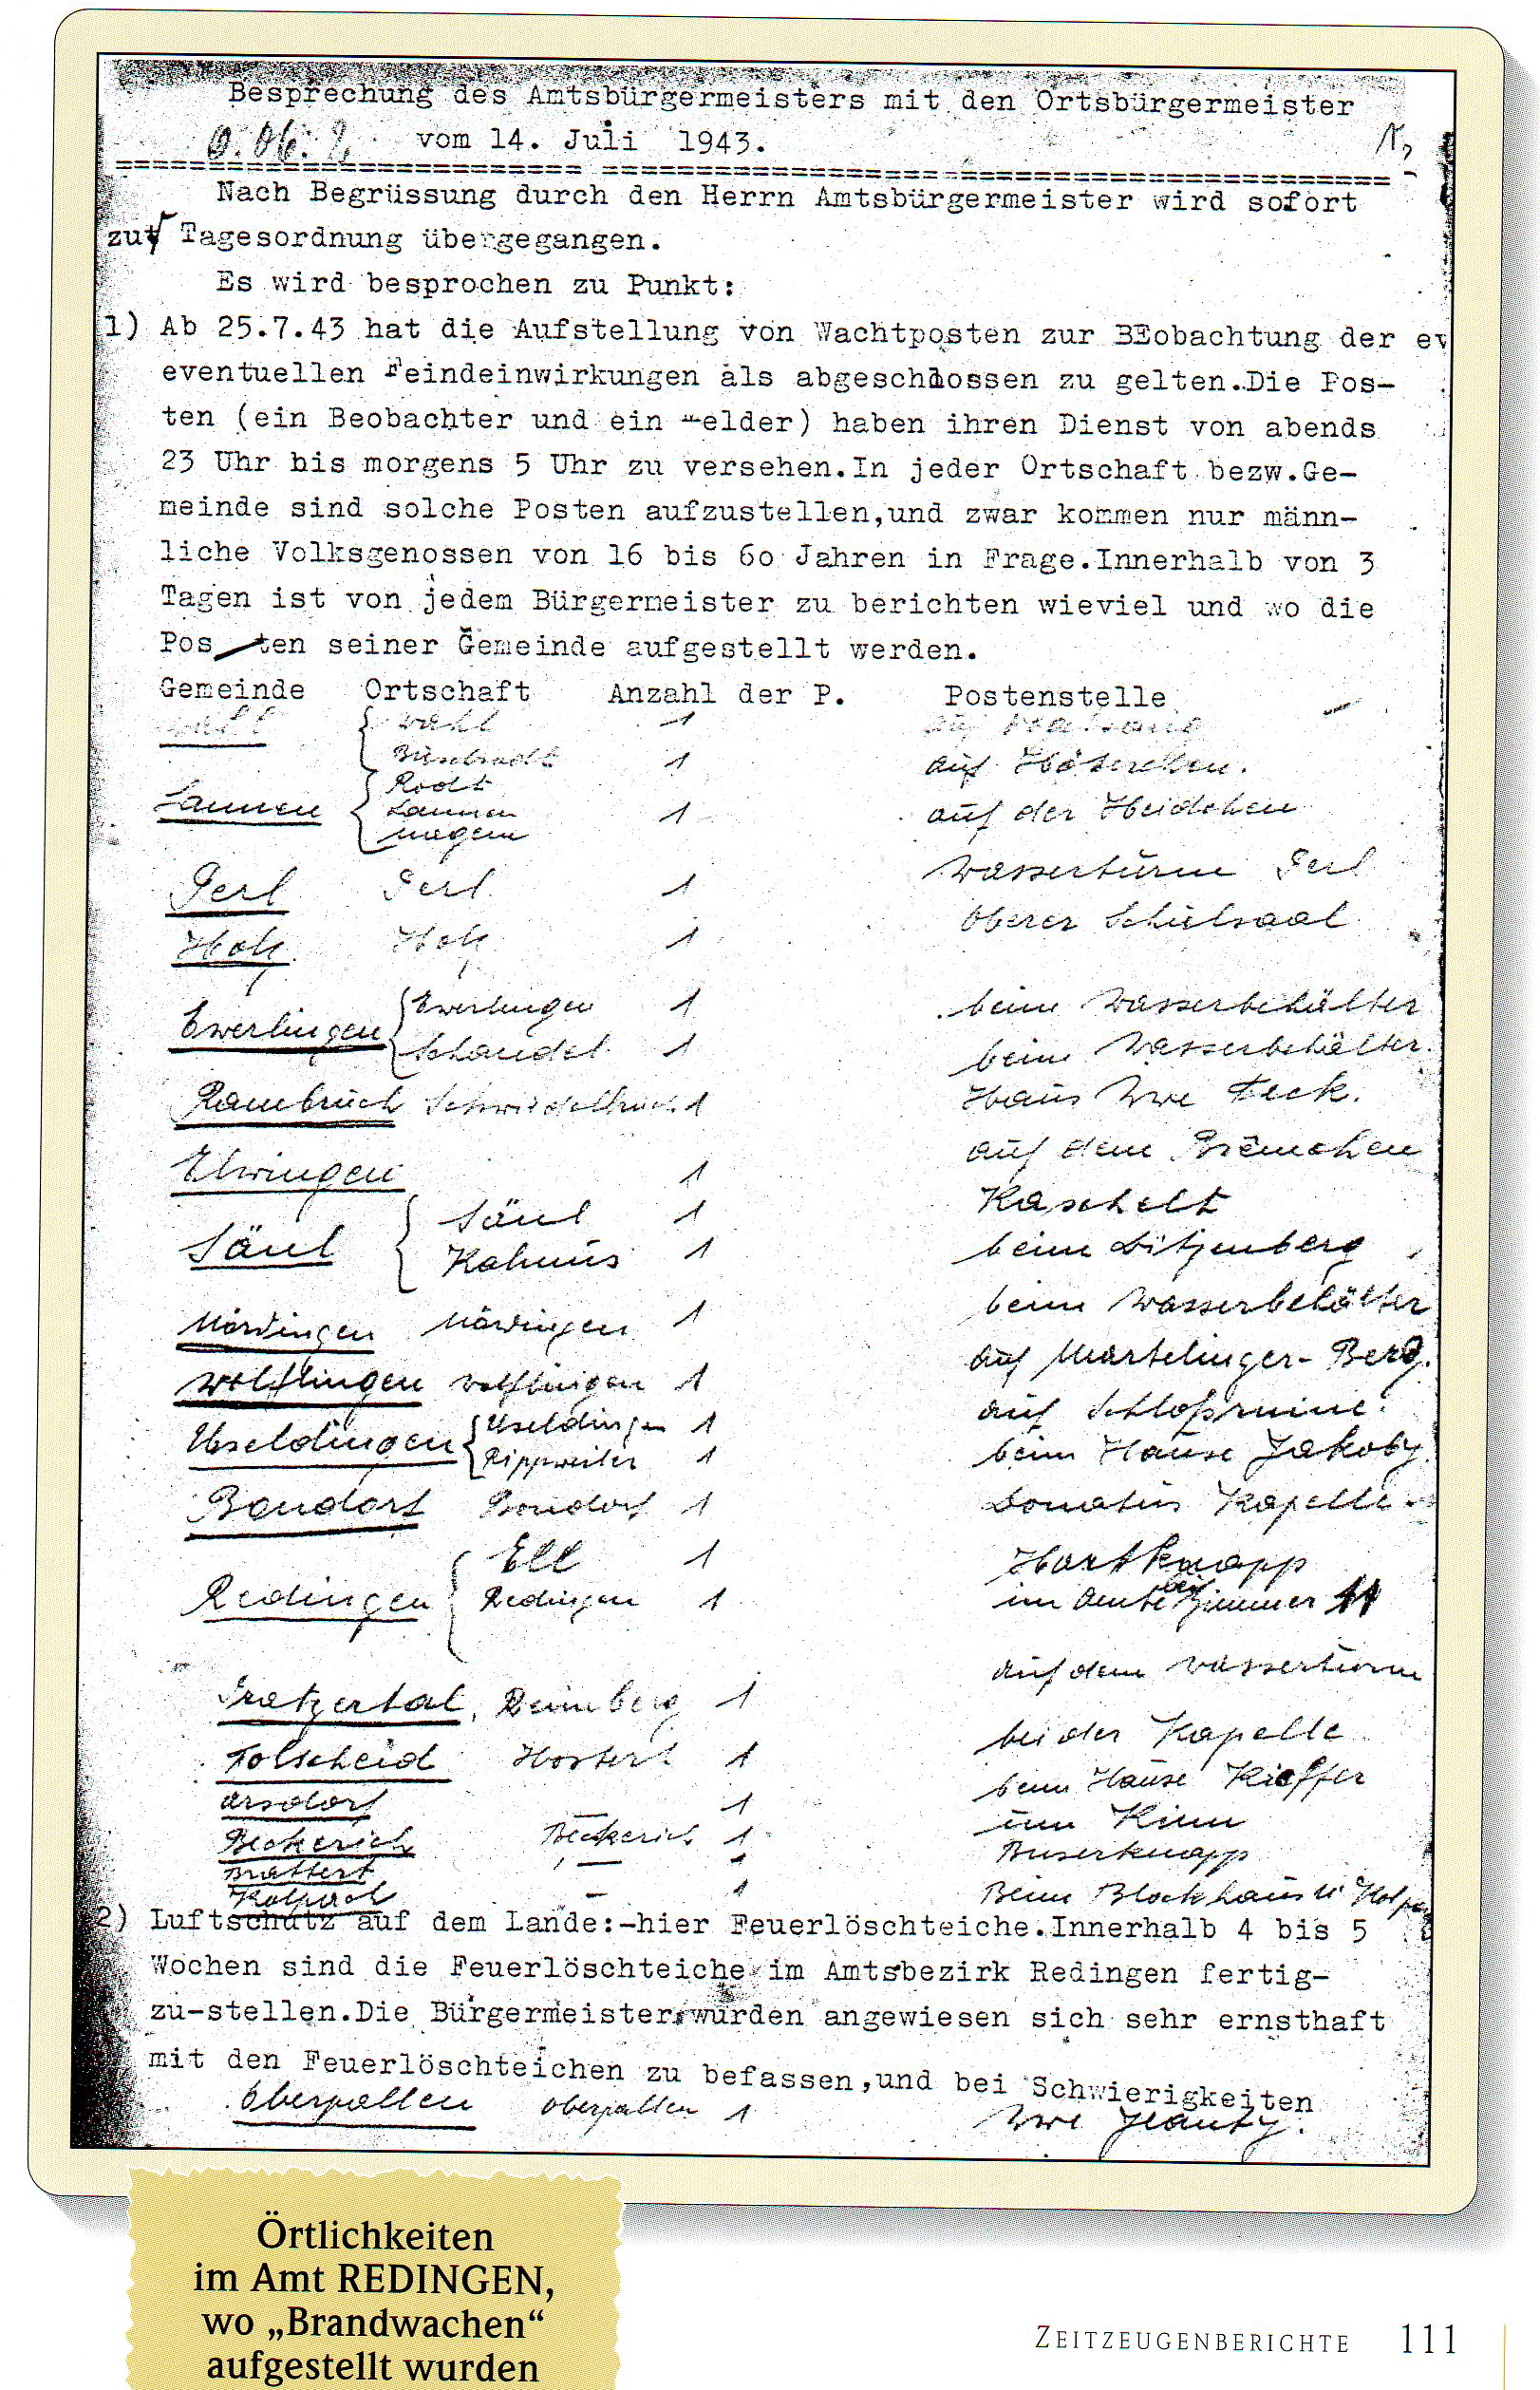 Besprechung des Amtsbürgermeisters mit den Ortsbürgermeister
vom 14. Juli 1943.
Nach Begrüssung durch den Herrn Amtsbürgermeister wird sofort
zur Tagesordnung übergegangen.
Es wird besprochen zu Punkt:
1) Ab 25.7.43 hat die Aufstellung von Wachtposten zur BEobachtung der ev
eventuellen Feindeinwirkungen als abgeschlossen zu gelten.Die Pos-
ten (ein Beobachter und ein Melder) haben ihren Dienst von abends
23 Uhr bis morgens 5 Uhr zu versehen.In jeder Ortschaft bezw.Ge-
meinde sind solche Posten aufzustellen,und zwar kommen nur männ-
liche Volksgenossen von 16 bis 60 Jahren in Frage.Innerhalb von 3
Tagen ist von jedem Bürgermeister zu berichten wieviel und wo die
Posten seiner Gemeinde aufgestellt werden.
Gemeinde Ortschaft Anzahl der P. Postenstelle
Wahl 1
1 auf
Lannen Rodt Lannen Nagem 1 auf der Heidchen
Perl Perl 1 Wasserturm Perl
Holz Holz 1 Oberer Schulsaal
Ewerlingen Ewerlingen 1 beim Wasserbehälter
Schandel 1 beim Wasserbehälter
Rambruch Schwiedelbruch 1 Haus Wwe Feck.
Elwingen 1 auf dem
Säul Säul 1 Kaschelt
Kahmus 1 beim Ditzenberg
Mördingen Mördingen 1 beim Wasserbehälter
Wolflingen Wolflingen 1 auf Martelinger-Berg.
Useldingen Useldingen 1 auf Schloßruine.
Rippweiler 1 beim Hause Jakoby.
Bondorf Bondorf 1 Donatus Kapelle
Redingen Ell 1 Hartknapp
Redingen 1 im Amte bei Zimmer 11
Pratzertal, Reimberg 1 auf dem Wasserturm
Folscheid Hostert 1 bei der Kapelle
Arsdorf 1 beim Hause Kieffer
Beckerich Beckerich 1
Brattert — 1 Buserknapp
Kolpach — 1 Beim Blockhaus
2) Luftschutz auf dem Lande:-hier Feuerlöschteiche.Innerhalb 4 bis 5
Wochen sind die Feuerlöschteiche im Amtsbezirk Redingen fertig-
zu-stellen.Die Bürgermeister wurden angewiesen sich sehr ernsthaft
mit den Feuerlöschteichen zu befassen,und bei Schwierigkeiten
Oberpallen Oberpallen 1 Wwe
Örtlichkeiten
im Amt REDINGEN,
wo „Brandwachen“
aufgestellt wurden
ZEITZEUGENBERICHTE 111